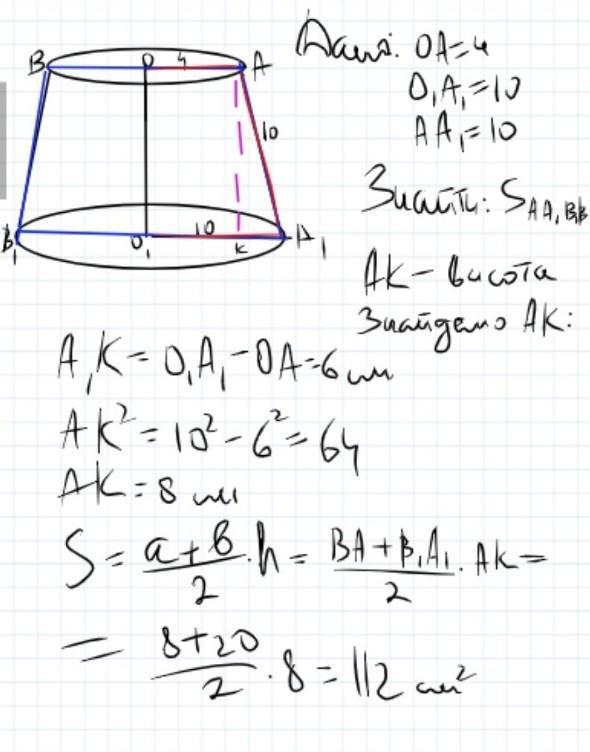 B O 4 A
10
B₁ O₁ 10 K A₁
Дано: OA=4
O₁A₁=10
AA₁=10
Знайти: S_AA₁B₁B
AK – висота
Знайдемо AK:
A₁K = O₁A₁ – OA = 6 см
AK² = 10² – 6² = 64
AK = 8 см
S = (a+b)/2 · h = (BA + B₁A₁)/2 · AK =
= (8+20)/2 · 8 = 112 см²